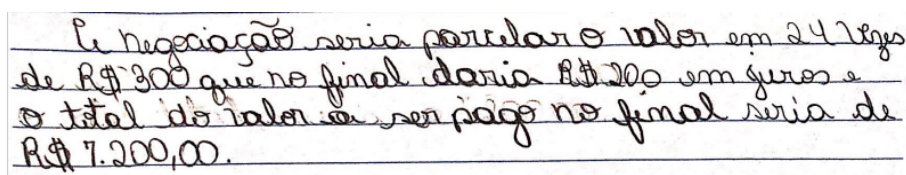 A negociação seria parcelar o valor em 24 vezes
de R$ 300 que no final daria R$ 200 em juros e
o total do valor a ser pago no final seria de
R$ 7.200,00.